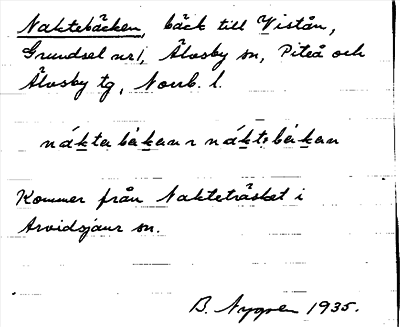 Naktebäcken, bäck till Vistån,
Grundsel nr 1, Älvsby sn, Piteå och
Älvsby tg, Norrb. l.
náktabàkan ~ náktəbàkan
Kommer från Nakteträsket i
Arvidsjaur sn.
B. Nygren 1935.